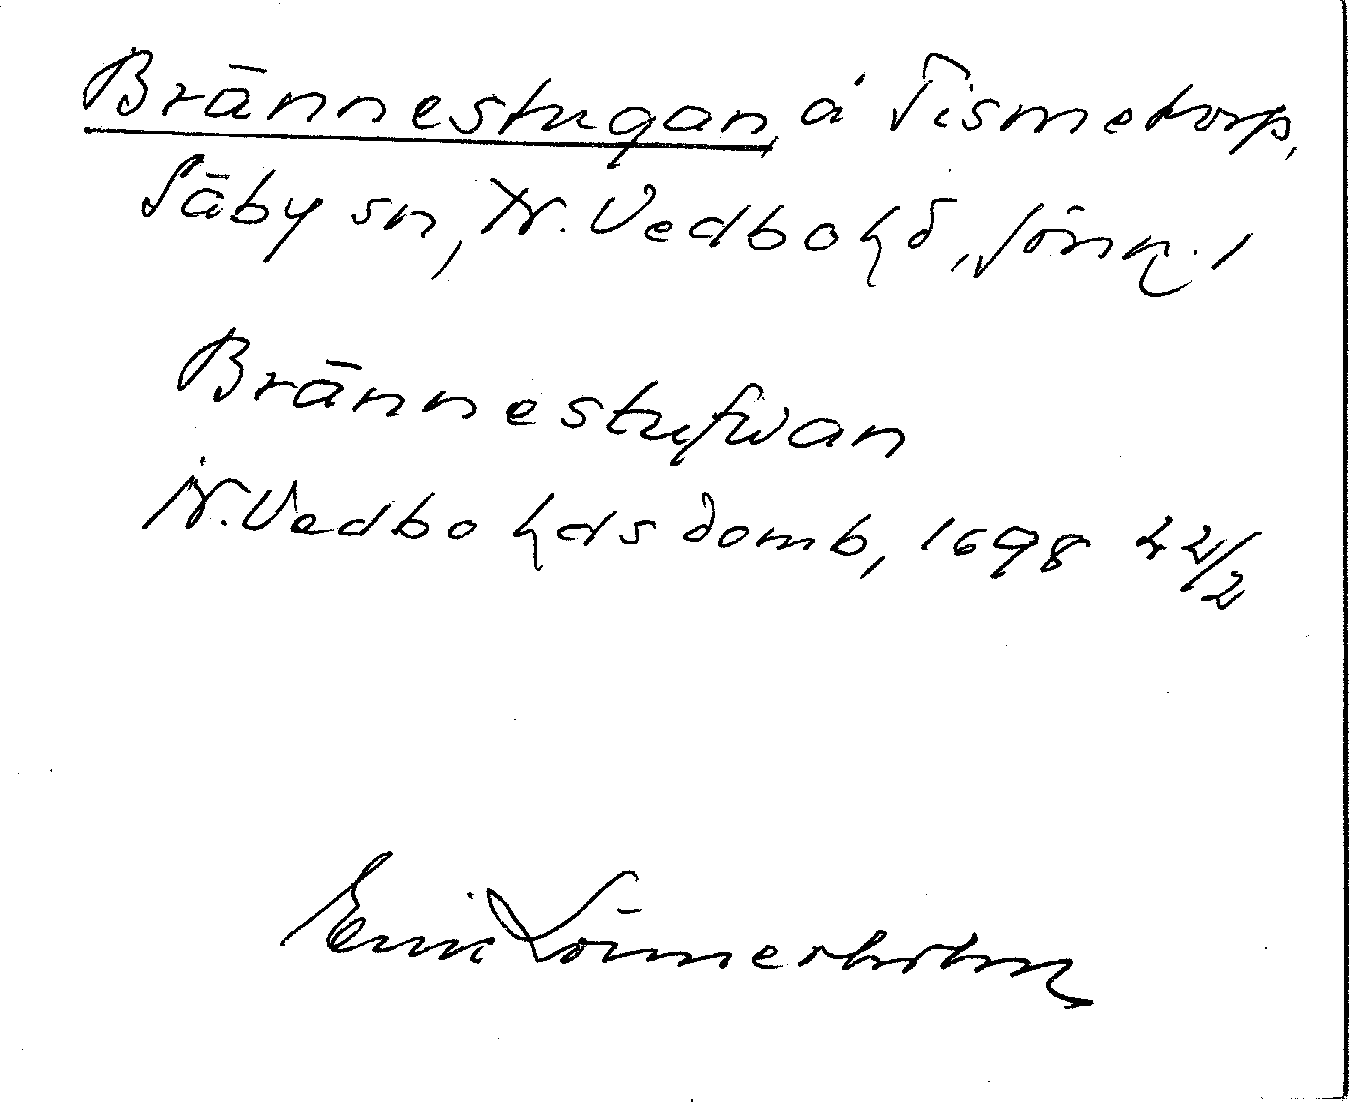 Brännestugan, å Tismetorp,
Säby sn, N. Vedbo hd, Jönk. l
Brännestufwan
N. Vedbo hds domb, 1698 22/2
Erik